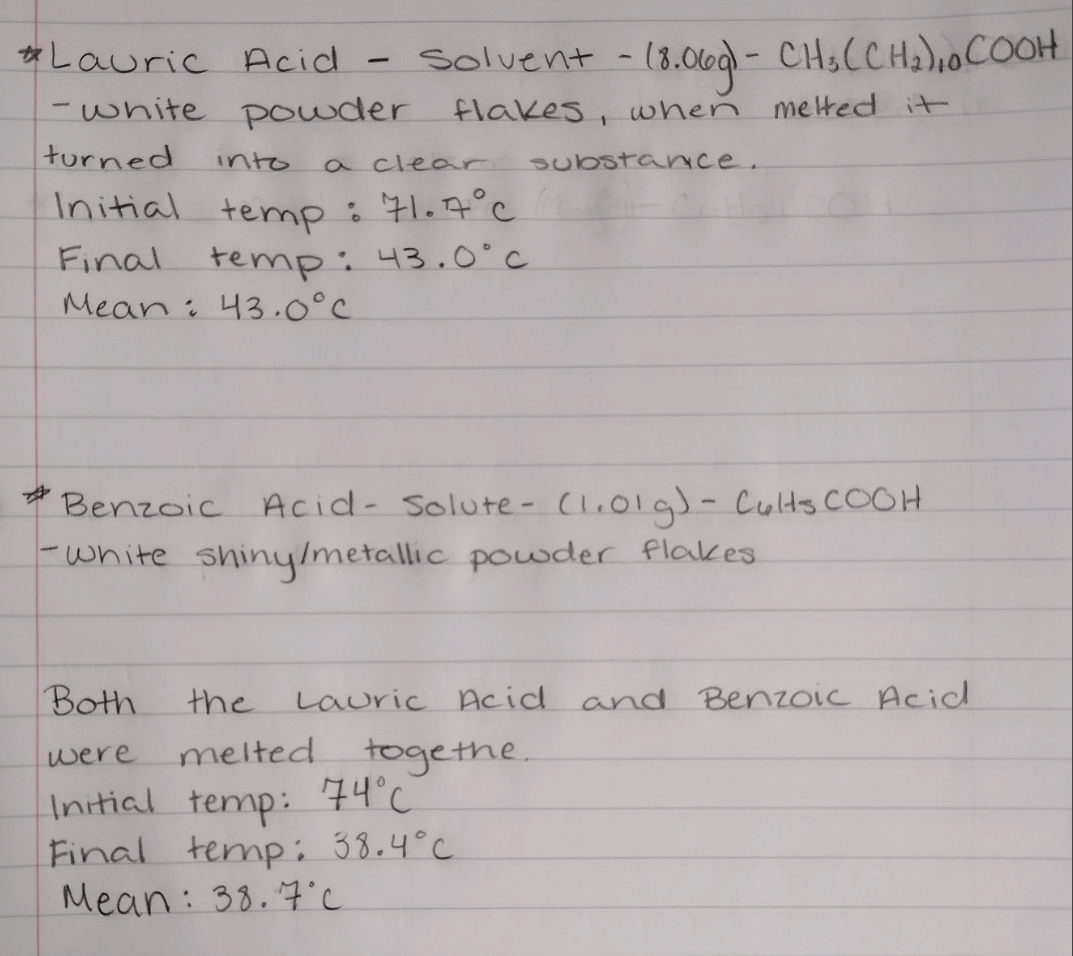 *Lauric Acid - Solvent - (8.06g) - CH₃(CH₂)₁₀COOH
-white powder flakes, when melted it
turned into a clear substance.
Initial temp: 71.7°C
Final temp: 43.0°C
Mean: 43.0°C
*Benzoic Acid - Solute - (1.01g) - C₆H₅COOH
-White shiny/metallic powder flakes
Both the Lauric Acid and Benzoic Acid
were melted togethe.
Initial temp: 74°C
Final temp: 38.4°C
Mean: 38.7°C